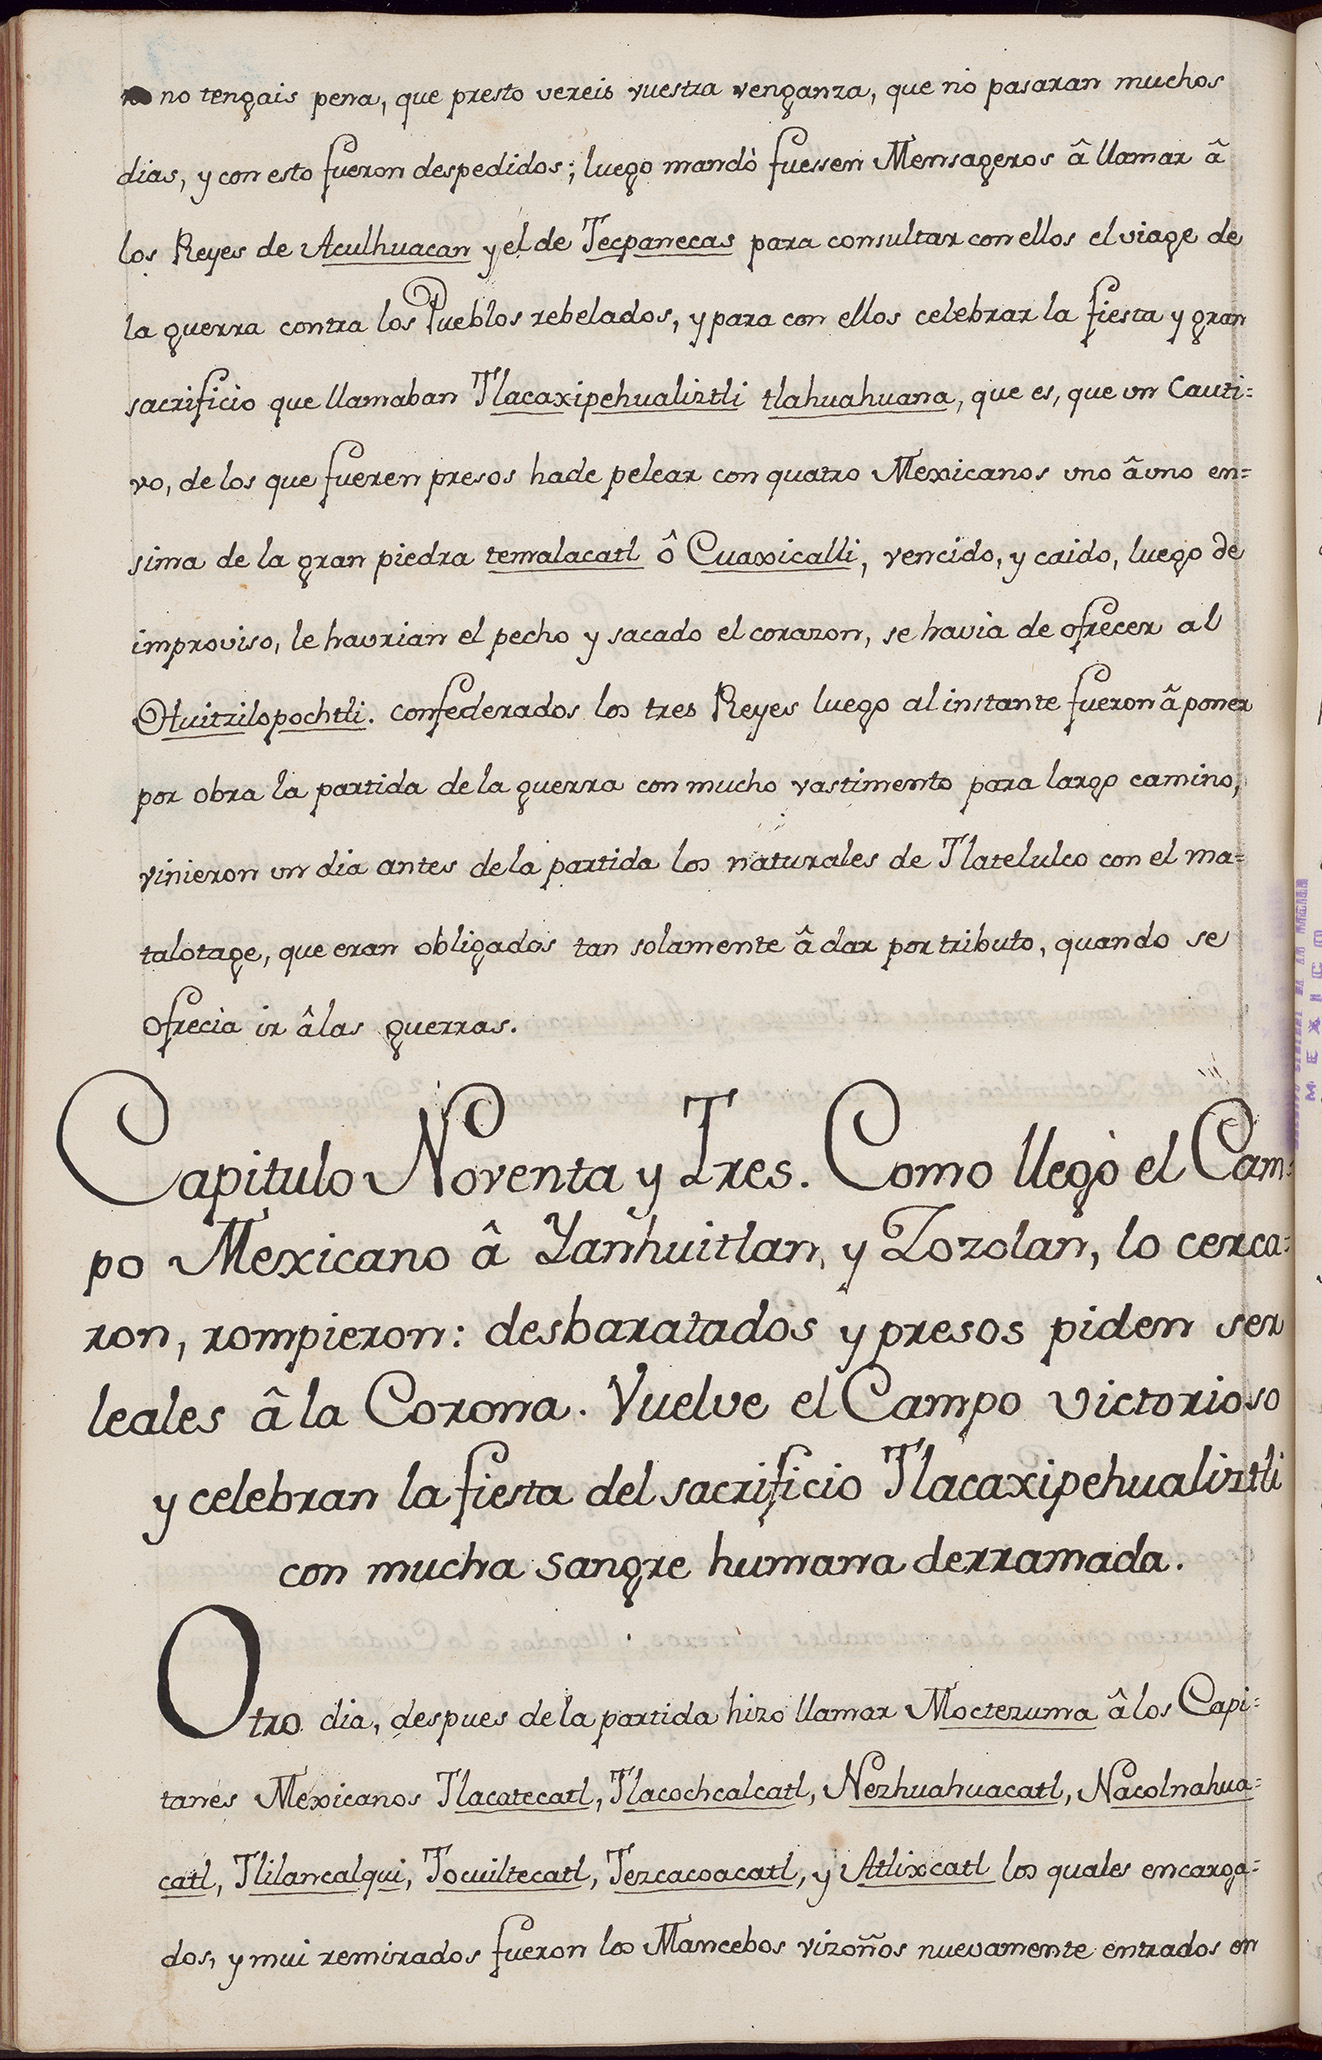 no tengais pena, que presto vereis vuestra venganza, que no pasaran muchos
dias, y con esto fueron despedidos; luego mandò fuessen Mensageros â llamar â
los Reyes de Aculhuacan y el de Tecpanecas para consultar con ellos el viage de
la guerra contra los Pueblos rebelados, y para con ellos celebrar la fiesta y gran
sacrificio que llamaban Tlacaxipehualiztli tlahuahuana, que es, que un Cauti=
vo, de los que fueren presos hade pelear con quatro Mexicanos uno âuno en=
sima de la gran piedra temalacatl ô Cuaxicalli, vencido, y caido, luego de
improviso, le havrian el pecho y sacado el corazon, se havia de ofrecer al
Huitzilopochtli. confederados los tres Reyes luego al instante fueron â poner
por obra la partida de la guerra con mucho vastimento para largo camino,
vinieron un dia antes de la partida los naturales de Tlatelulco con el ma=
talotage, que eran obligados tan solamente â dar por tributo, quando se
ofrecia ir âlas guerras.
Capitulo Noventa y Tres. Como llegò el Cam=
po Mexicano â Yanhuitlan, y Zozolan, lo cerca=
ron, rompieron: desbaratados y presos piden ser
leales â la Corona. Vuelve el Campo victorioso
y celebran la fiesta del sacrificio Tlacaxipehualiztli
con mucha sangre humana derramada.
Otro dia, despues de la partida hizo llamar Moctezuma â los Capi=
tanes Mexicanos Tlacatecatl, Tlacochcalcatl, Nezhuahuacatl, Nacolnahua=
catl, Tlilancalqui, Tocuiltecatl, Tezcacoacatl, y Atlixcatl los quales encarga=
dos, y mui remirados fueron los Mancebos vizoños nuevamente entrados en
MEXICO